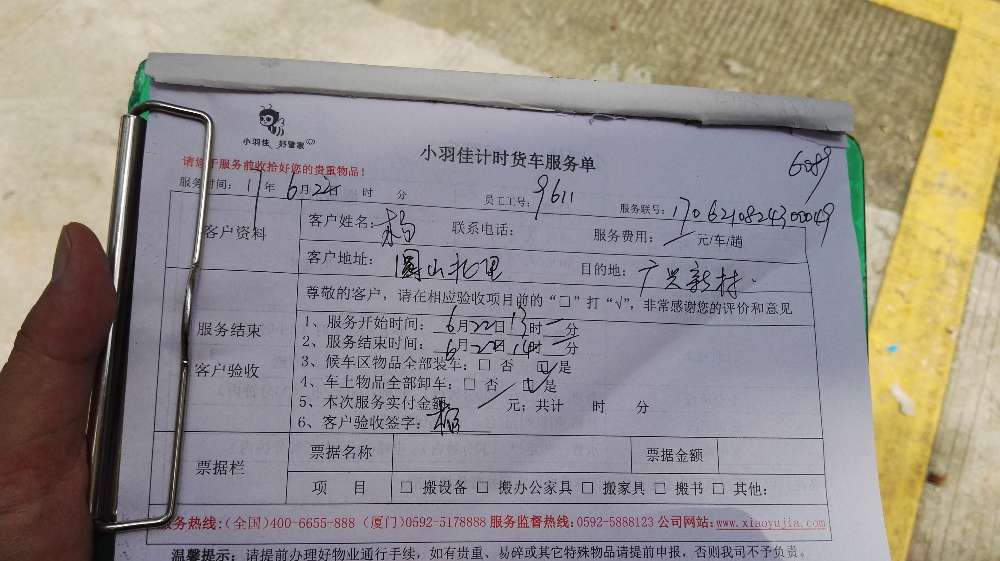 小羽佳 好管家
小羽佳计时货车服务单
6089
请您于服务前收拾好您的贵重物品！
服务时间：17年 6月 22日 时 分 员工工号：9611 服务联号：17062108243000049
客户资料
客户姓名：杨 联系电话： 服务费用： 元/车/趟
客户地址： 山北里 目的地：广兴新村
服务结束
客户验收
尊敬的客户，请在相应验收项目前的“□”打“√”，非常感谢您的评价和意见
1、服务开始时间：6月22日13时 分
2、服务结束时间：6月22日14时 分
3、候车区物品全部装车：□ 否 □ 是
4、车上物品全部卸车：□ 否 □ 是
5、本次服务实付金额 元；共计 时 分
6、客户验收签字：杨
票据栏
票据名称 票据金额
项 目 □ 搬设备 □ 搬办公家具 □ 搬家具 □ 搬书 □ 其他：
服务热线：(全国)400-6655-888 (厦门)0592-5178888 服务监督热线：0592-5888123 公司网站：www.xiaoyujia.com
温馨提示：请提前办理好物业通行手续，如有贵重、易碎或其它特殊物品请提前申报，否则我司不予负责。